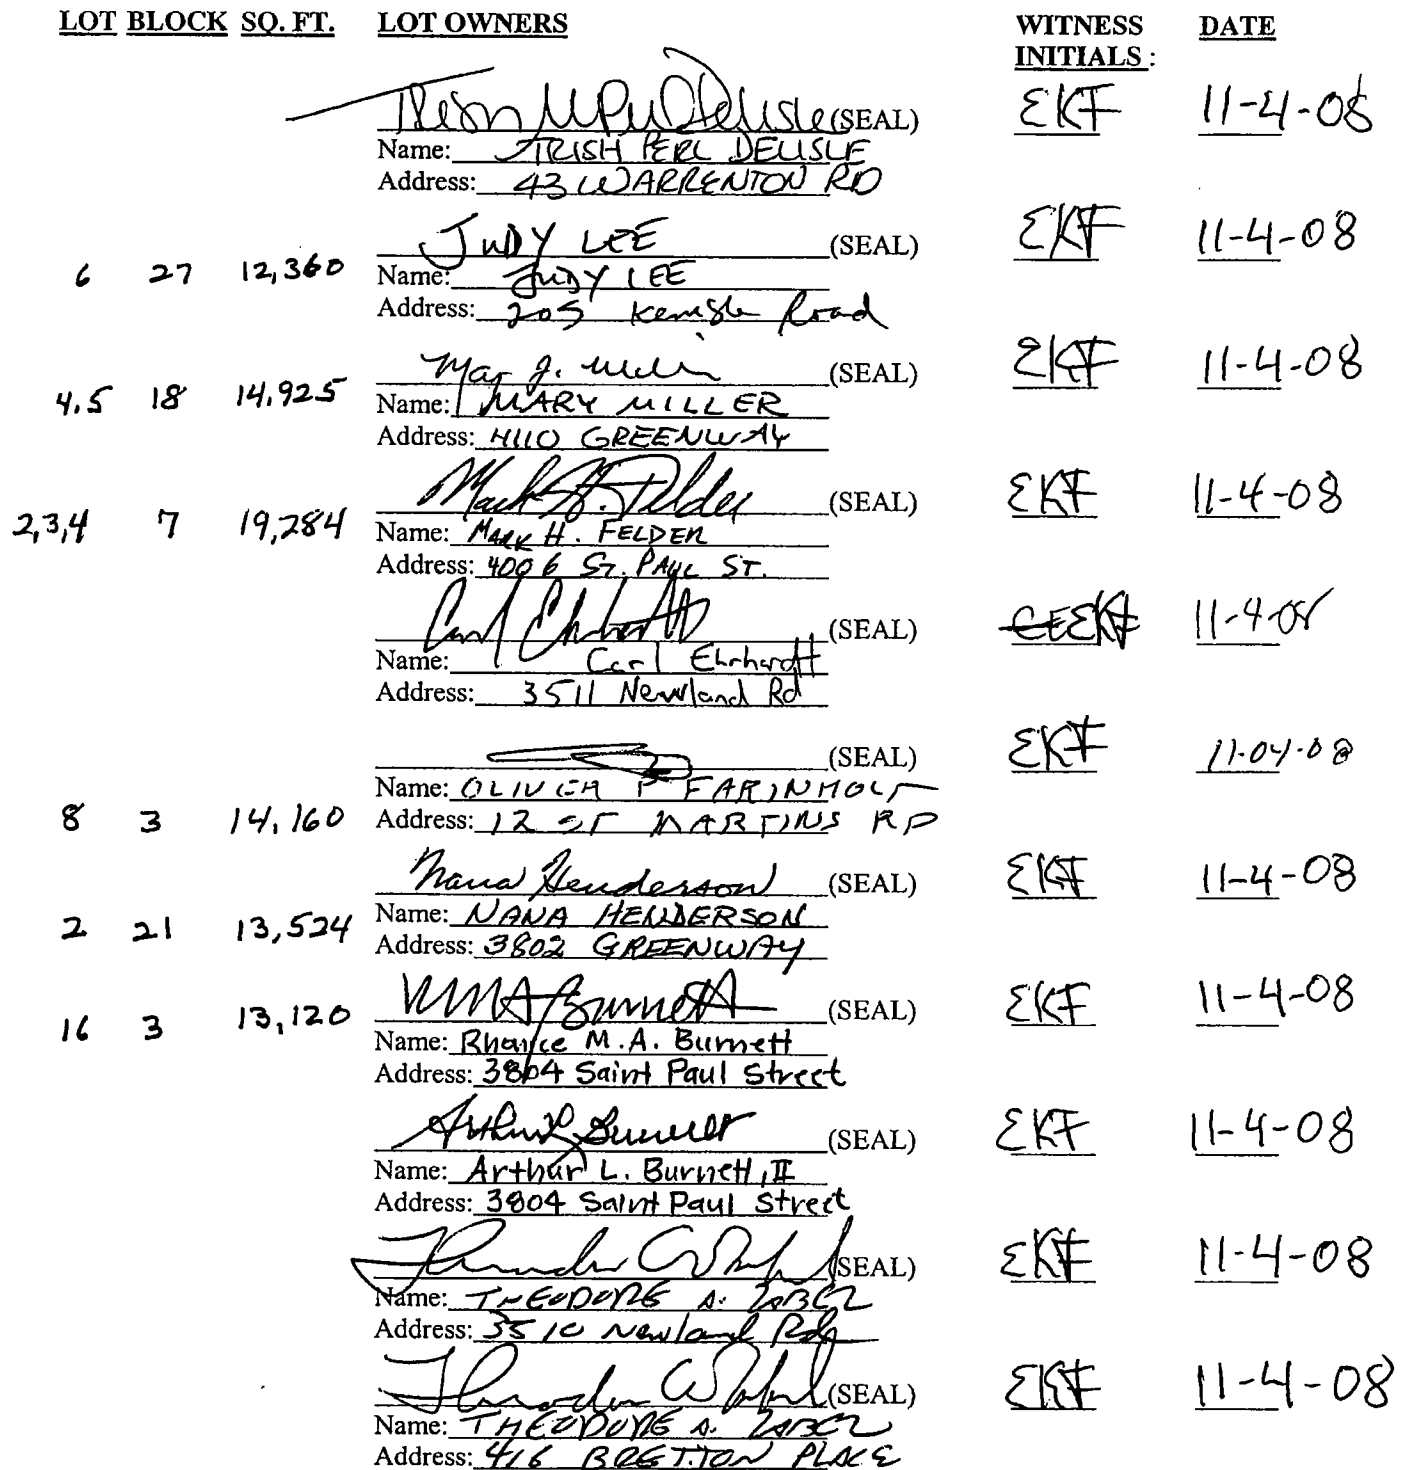 LOT BLOCK SQ. FT. LOT OWNERS WITNESS INITIALS : DATE
(SEAL) EKF 11-4-08
Name: TRISH PERL DELISLE
Address: 43 WARRENTON RD
JUDY LEE (SEAL) EKF 11-4-08
6 27 12,360 Name: JUDY LEE
Address: 205 Road
(SEAL) EKF 11-4-08
4,5 18 14,925 Name: MARY MILLER
Address: 4110 GREENWAY
Mark H. Felder (SEAL) EKF 11-4-08
2,3,4 7 19,284 Name: MARK H. FELDER
Address: 4006 ST. PAUL ST.
Carl Ehrhardt (SEAL) EKF 11-4-08
Name: Carl Ehrhardt
Address: 3511 Newland Rd
(SEAL) EKF 11-04-08
Name: OLIVER P FARINHOLT
8 3 14,160 Address: 12 ST MARTINS RD
Nana Henderson (SEAL) EKF 11-4-08
2 21 13,524 Name: NANA HENDERSON
Address: 3802 GREENWAY
RMA Burnett (SEAL) EKF 11-4-08
16 3 13,120 Name: M.A. Burnett
Address: 3804 Saint Paul Street
Arthur L Burnett (SEAL) EKF 11-4-08
Name: Arthur L. Burnett, II
Address: 3804 Saint Paul Street
(SEAL) EKF 11-4-08
Name: THEODORE A.
Address: 3510 Newland Rd
(SEAL) EKF 11-4-08
Name: THEODORE A.
Address: 416 BRETTON PLACE